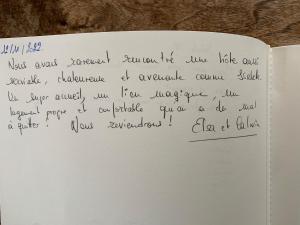 12/11/2022
Nous avons rarement rencontré une hôte aussi
sociable, chaleureuse et avenante comme
Un super accueil, un lieu magique, un
logement propre et confortable qu'on a du mal
à quitter ! Nous reviendrons ! Elsa et